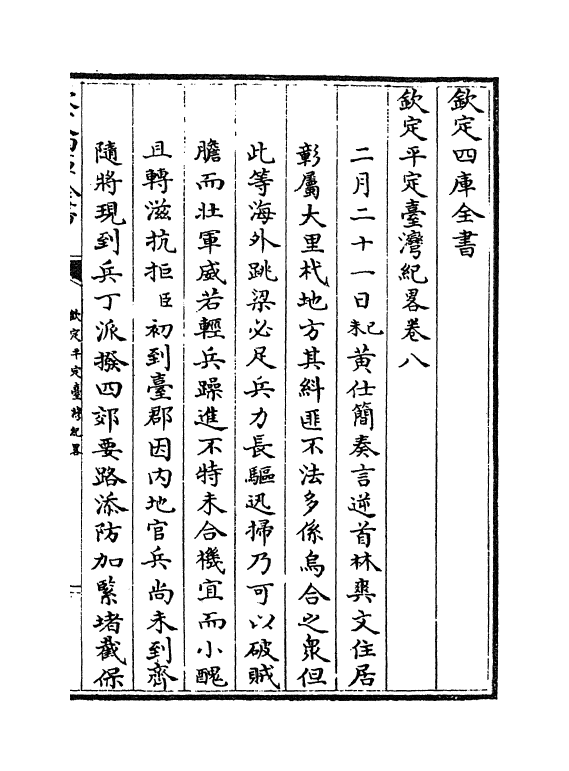 欽定四庫全書
欽定平定臺灣紀畧卷八
二月二十一日己未黃仕簡奏言逆首林爽文住居
彰屬大里杙地方其糾匪不法多係烏合之衆但
此等海外跳梁必足兵力長驅迅掃乃可以破賊
膽而壯軍威若輕兵躁進不特未合機宜而小醜
且轉滋抗拒臣初到臺郡因内地官兵尚未到齊
隨將現到兵丁派撥四郊要路添防加緊堵截保
欽定平定臺灣紀畧